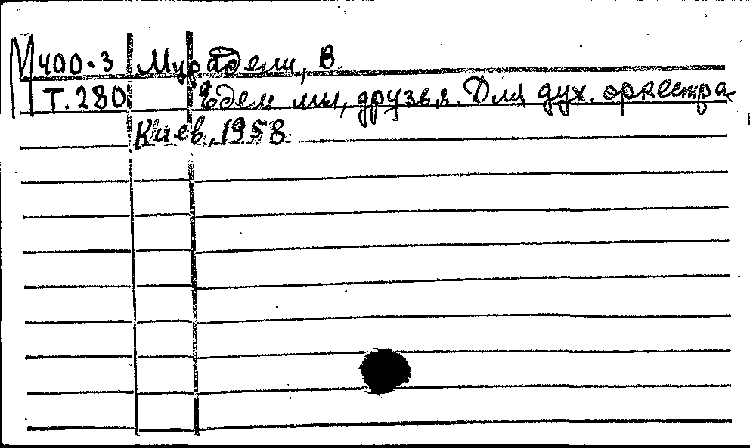 М 400-3 Мурадели, В.
Т. 280 Едем мы, друзья. Для дух. оркестра.
Киев, 1958